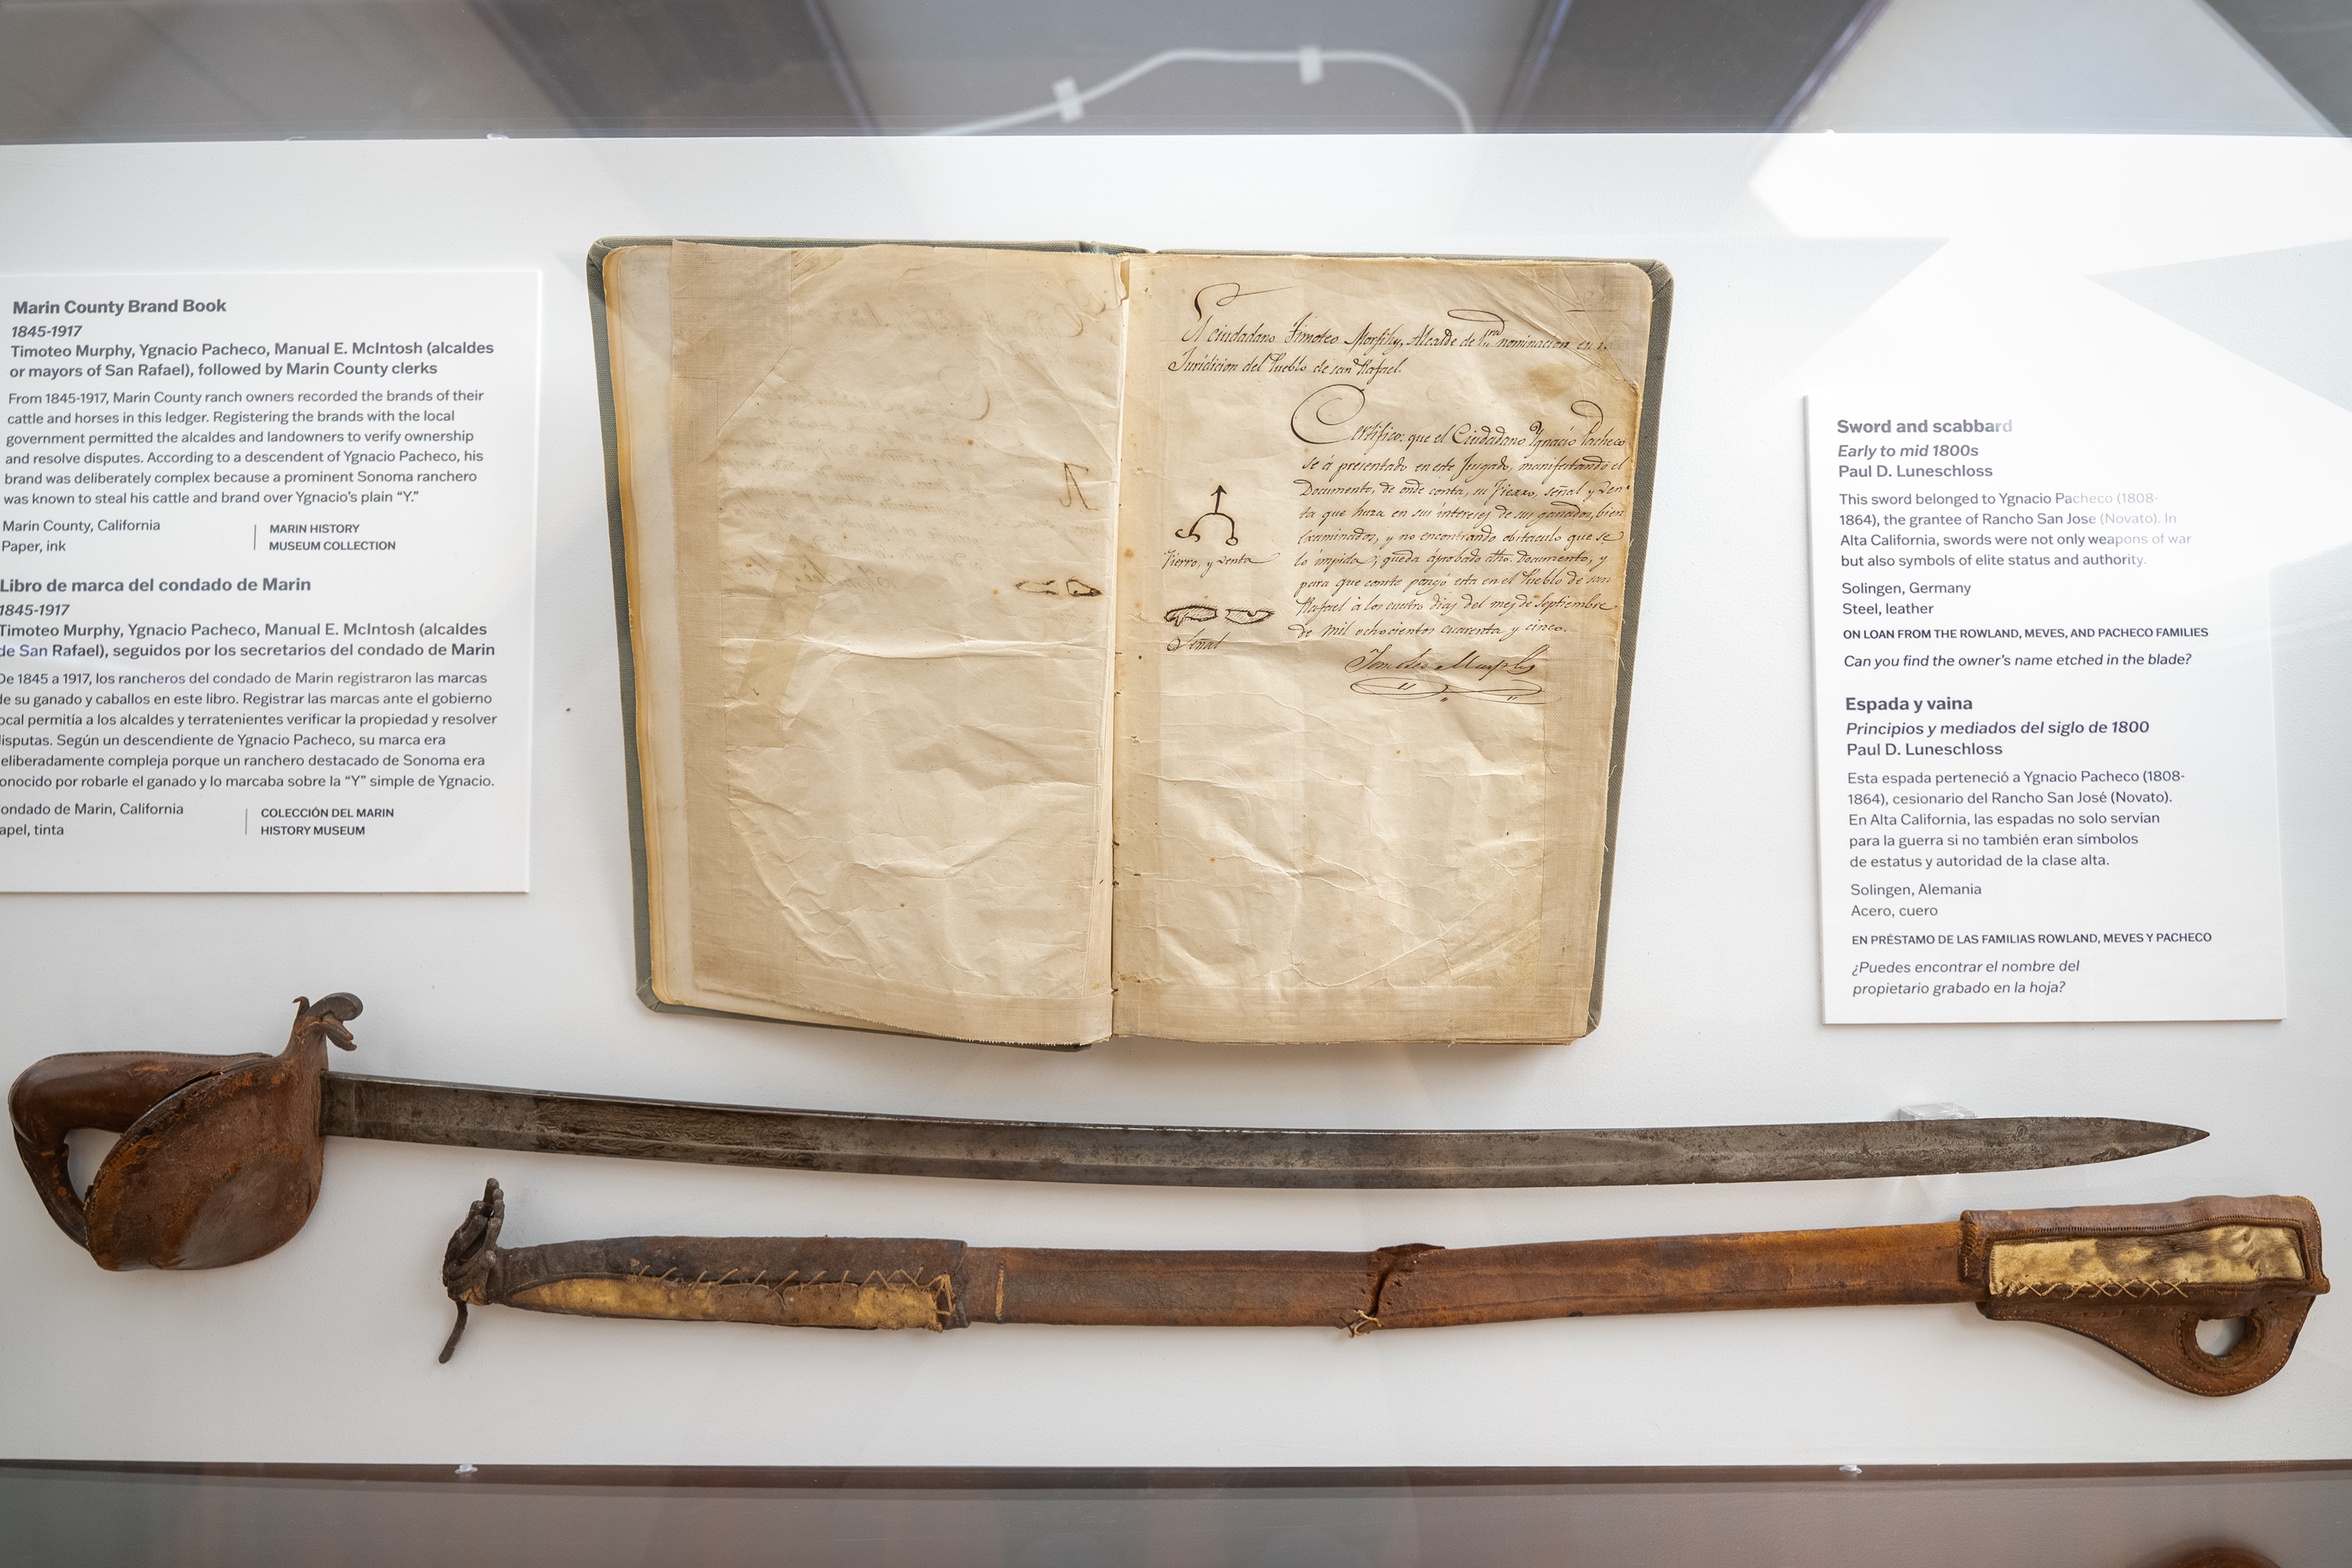 Marin County Brand Book
1845-1917
Timoteo Murphy, Ygnacio Pacheco, Manual E. McIntosh (alcaldes
or mayors of San Rafael), followed by Marin County clerks
From 1845-1917, Marin County ranch owners recorded the brands of their
cattle and horses in this ledger. Registering the brands with the local
government permitted the alcaldes and landowners to verify ownership
and resolve disputes. According to a descendent of Ygnacio Pacheco, his
brand was deliberately complex because a prominent Sonoma ranchero
was known to steal his cattle and brand over Ygnacio's plain “Y.”
Marin County, California
Paper, ink
MARIN HISTORY
MUSEUM COLLECTION
Libro de marca del condado de Marin
1845-1917
Timoteo Murphy, Ygnacio Pacheco, Manual E. McIntosh (alcaldes
de San Rafael), seguidos por los secretarios del condado de Marin
De 1845 a 1917, los rancheros del condado de Marin registraron las marcas
de su ganado y caballos en este libro. Registrar las marcas ante el gobierno
ocal permitía a los alcaldes y terratenientes verificar la propiedad y resolver
isputas. Según un descendiente de Ygnacio Pacheco, su marca era
eliberadamente compleja porque un ranchero destacado de Sonoma era
onocido por robarle el ganado y lo marcaba sobre la “Y” simple de Ygnacio.
ondado de Marin, California
apel, tinta
COLECCIÓN DEL MARIN
HISTORY MUSEUM
El ciudadano Timoteo Morfhy, Alcalde de 1ra nominacion en
Juridicion del Pueblo de san Rafael.
Certifico: que el Ciudadano Ygnacio Pacheco
se á presentado en este Juzgado, manifestando el
Documento, de onde conta, su Fierro, señal y Ven
ta que huza en sus intereses de sus ganados, bien
Examinados, y no encontrando obstaculo que se
lo impida; queda áprobado dho. Documento, y
para que conste pongo esta en el Pueblo de san
Rafael á los cuatro dias del mes de Septiembre
de mil ochocientos cuarenta y cinco.
Timoteo Murphy
Fierro, y venta
Señal
Sword and scabbard
Early to mid 1800s
Paul D. Luneschloss
This sword belonged to Ygnacio Pacheco (1808-
1864), the grantee of Rancho San Jose (Novato). In
Alta California, swords were not only weapons of war
but also symbols of elite status and authority.
Solingen, Germany
Steel, leather
ON LOAN FROM THE ROWLAND, MEVES, AND PACHECO FAMILIES
Can you find the owner's name etched in the blade?
Espada y vaina
Principios y mediados del siglo de 1800
Paul D. Luneschloss
Esta espada perteneció a Ygnacio Pacheco (1808-
1864), cesionario del Rancho San José (Novato).
En Alta California, las espadas no solo servían
para la guerra si no también eran símbolos
de estatus y autoridad de la clase alta.
Solingen, Alemania
Acero, cuero
EN PRÉSTAMO DE LAS FAMILIAS ROWLAND, MEVES Y PACHECO
¿Puedes encontrar el nombre del
propietario grabado en la hoja?